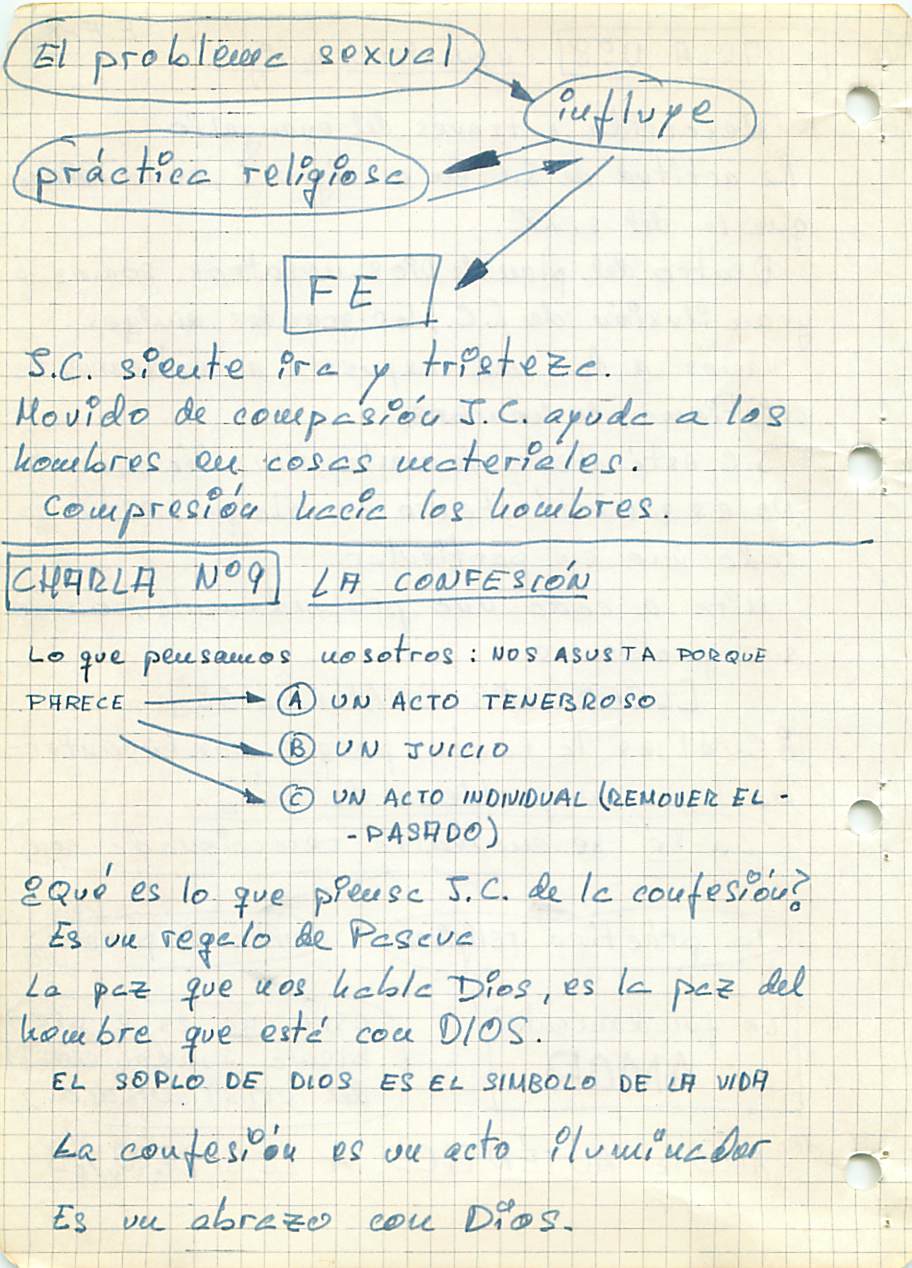 El problema sexual
influye
práctica religiosa
FE
J.C. siente ira y tristeza.
Movido de compasión J.C. ayuda a los
hombres en cosas materiales.
Compresión hacia los hombres.
CHARLA Nº9 LA CONFESIÓN
Lo que pensamos nosotros: NOS ASUSTA PORQUE
PARECE A UN ACTO TENEBROSO
B UN JUICIO
C UN ACTO INDIVIDUAL (REMOVER EL -
- PASADO)
¿Qué es lo que piensa J.C. de la confesión?
Es un regalo de Pascua
La paz que nos habla Dios, es la paz del
hombre que está con DIOS.
EL SOPLO DE DIOS ES EL SIMBOLO DE LA VIDA
La confesión es un acto iluminador
Es un abrazo con Dios.